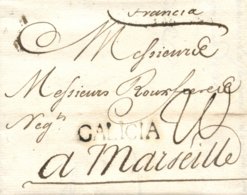 Francia
Messieurs
Messieurs Roux freres
Neg.ts
GALICIA
a Marseille